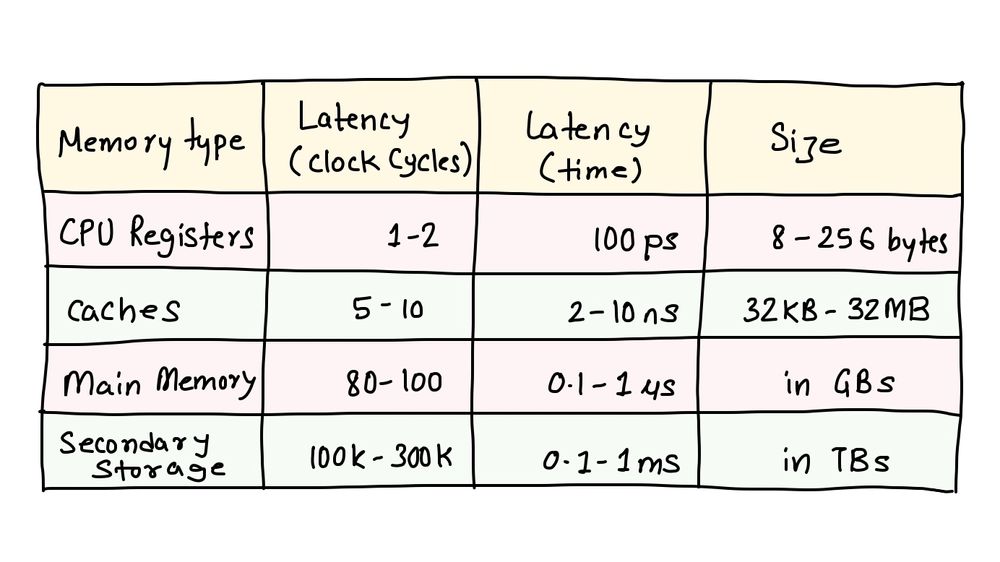 Memory type
Latency
(clock Cycles)
Latency
(time)
Size
CPU Registers
1-2
100 ps
8 - 256 bytes
Caches
5 - 10
2 - 10 ns
32KB - 32MB
Main Memory
80 - 100
0.1 - 1 μs
in GBs
Secondary
Storage
100k - 300k
0.1 - 1 ms
in TBs